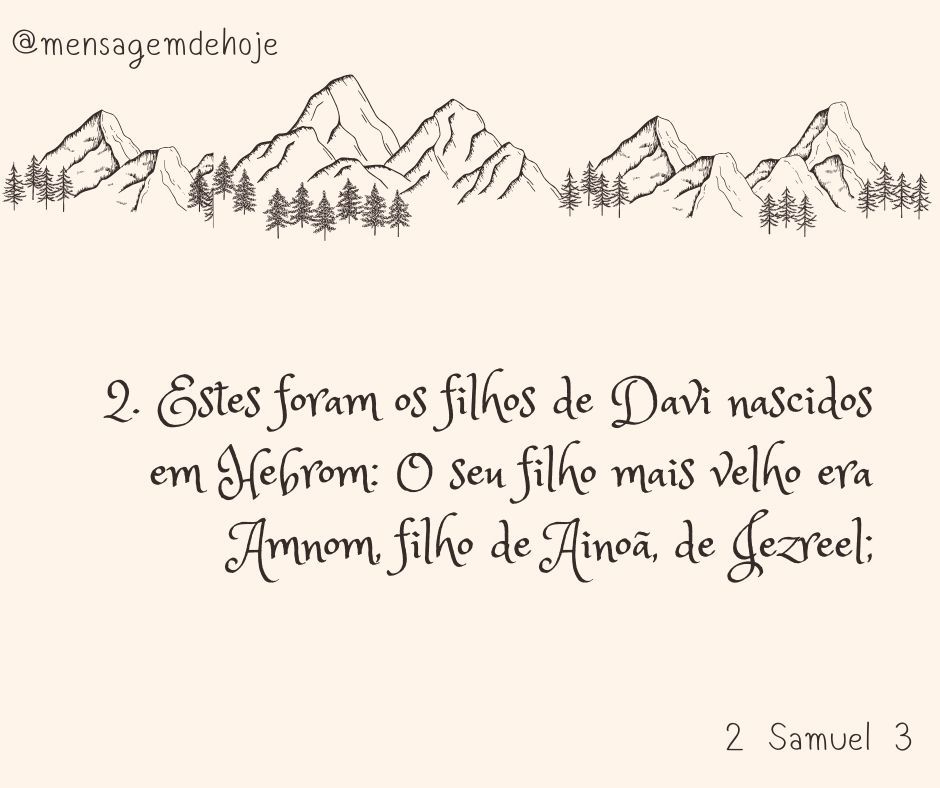 @mensagemdehoje
2. Estes foram os filhos de Davi nascidos
em Hebrom: O seu filho mais velho era
Amnom, filho de Ainoã, de Jezreel;
2 Samuel 3